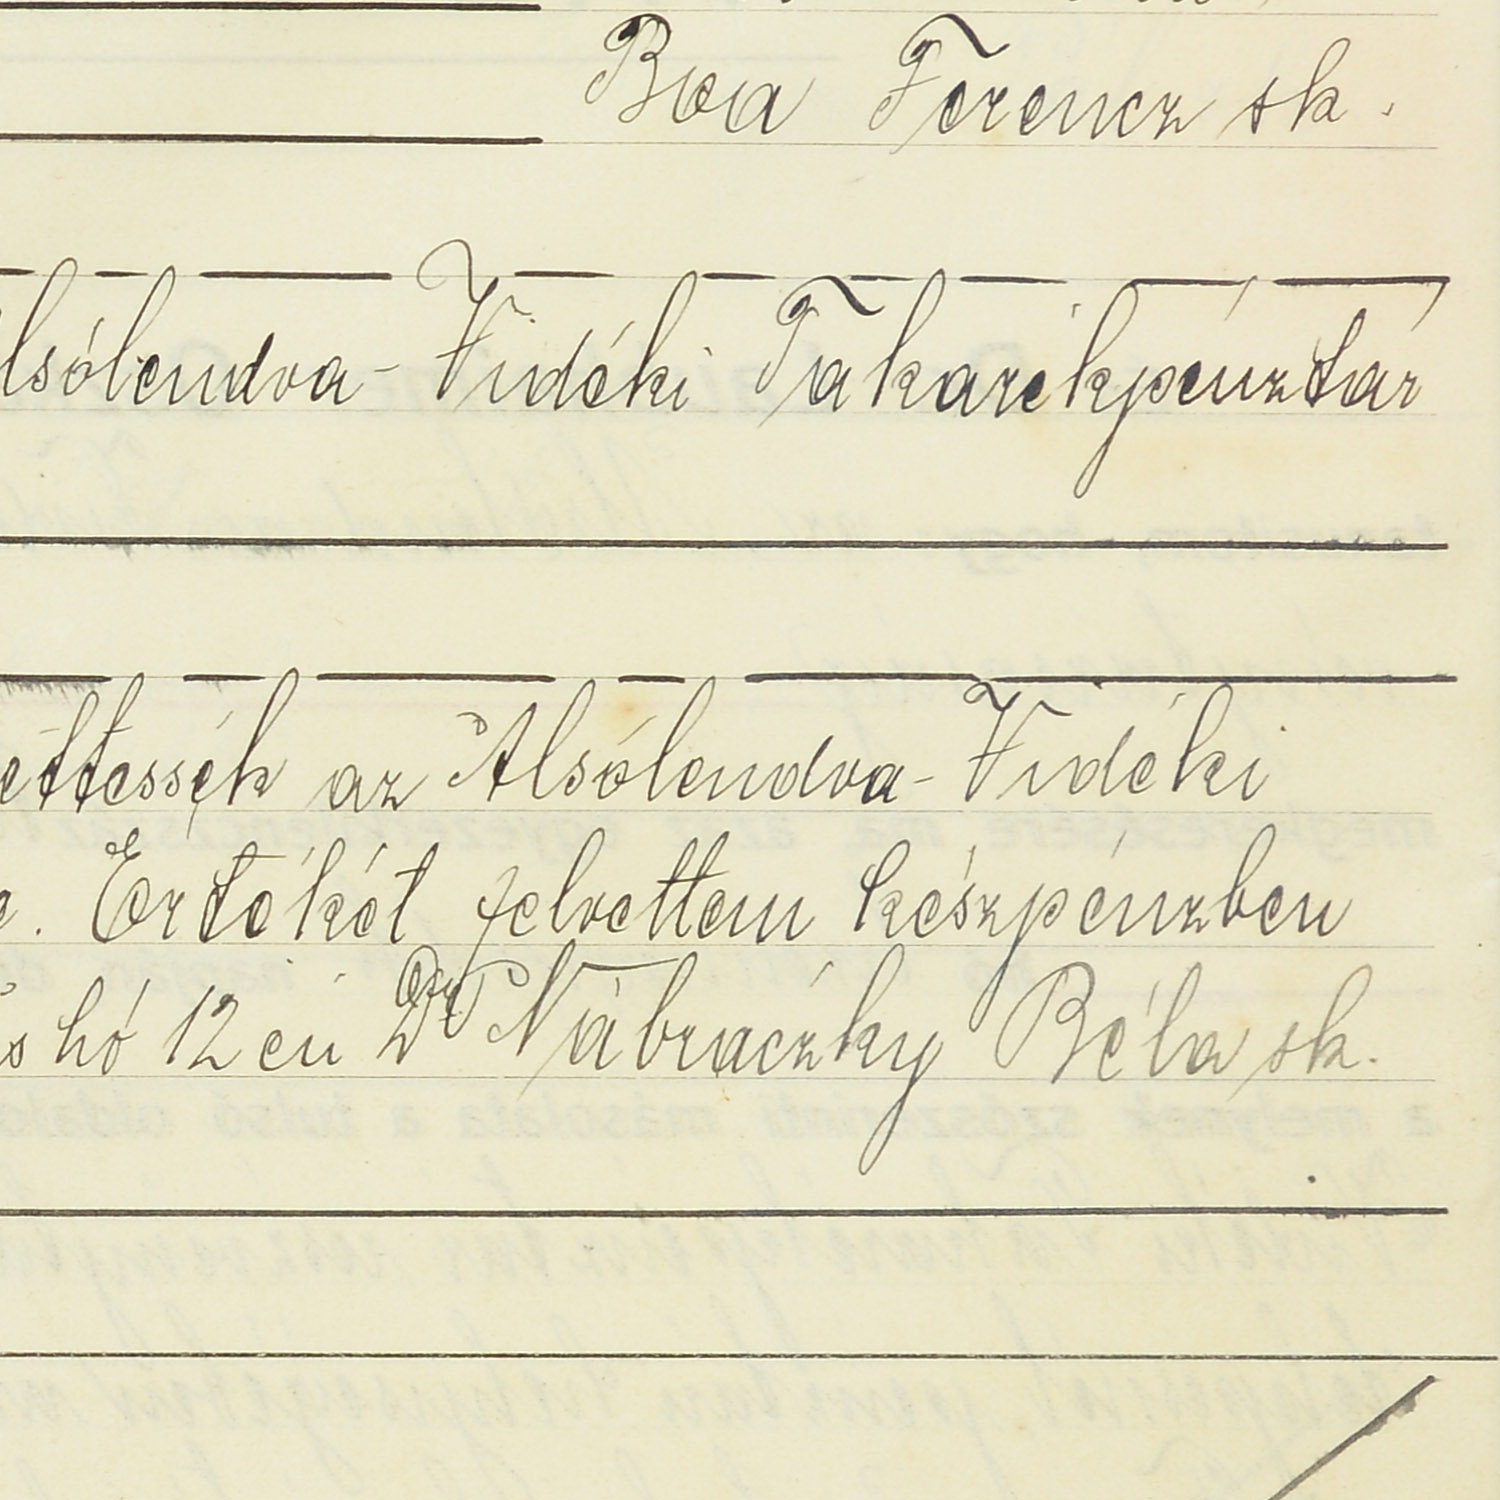 Boa Ferencz sk.
lsólendva-Vidéki Takarékpénztár
ettessék az Alsólendva-Vidéki
Értékét felvettem készpénzben
s hó 12 én Dr Nábraczky Béla sk.